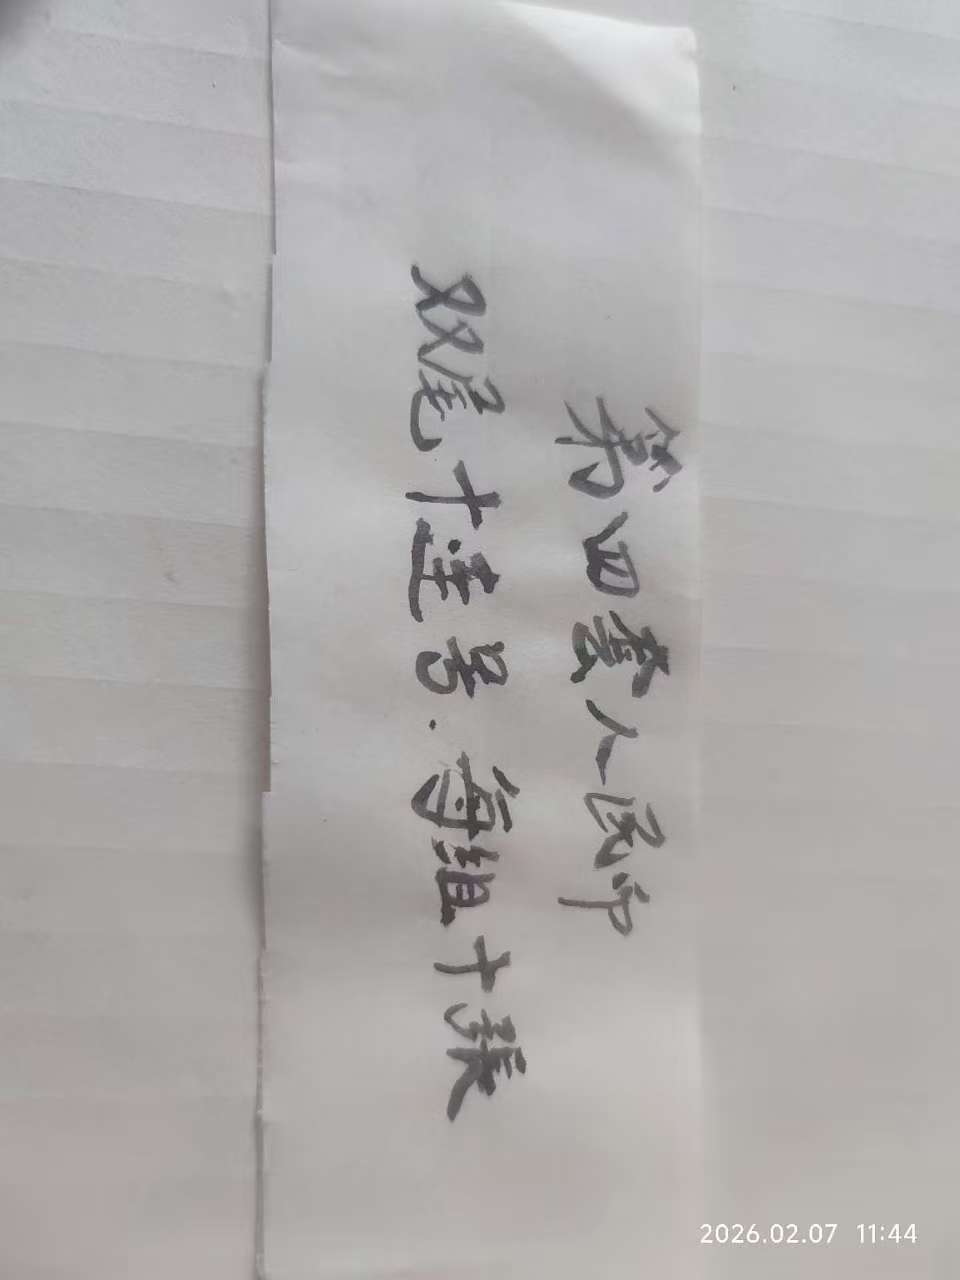 第四套人民币
双尾十連号.每组十張
2026.02.07 11:44